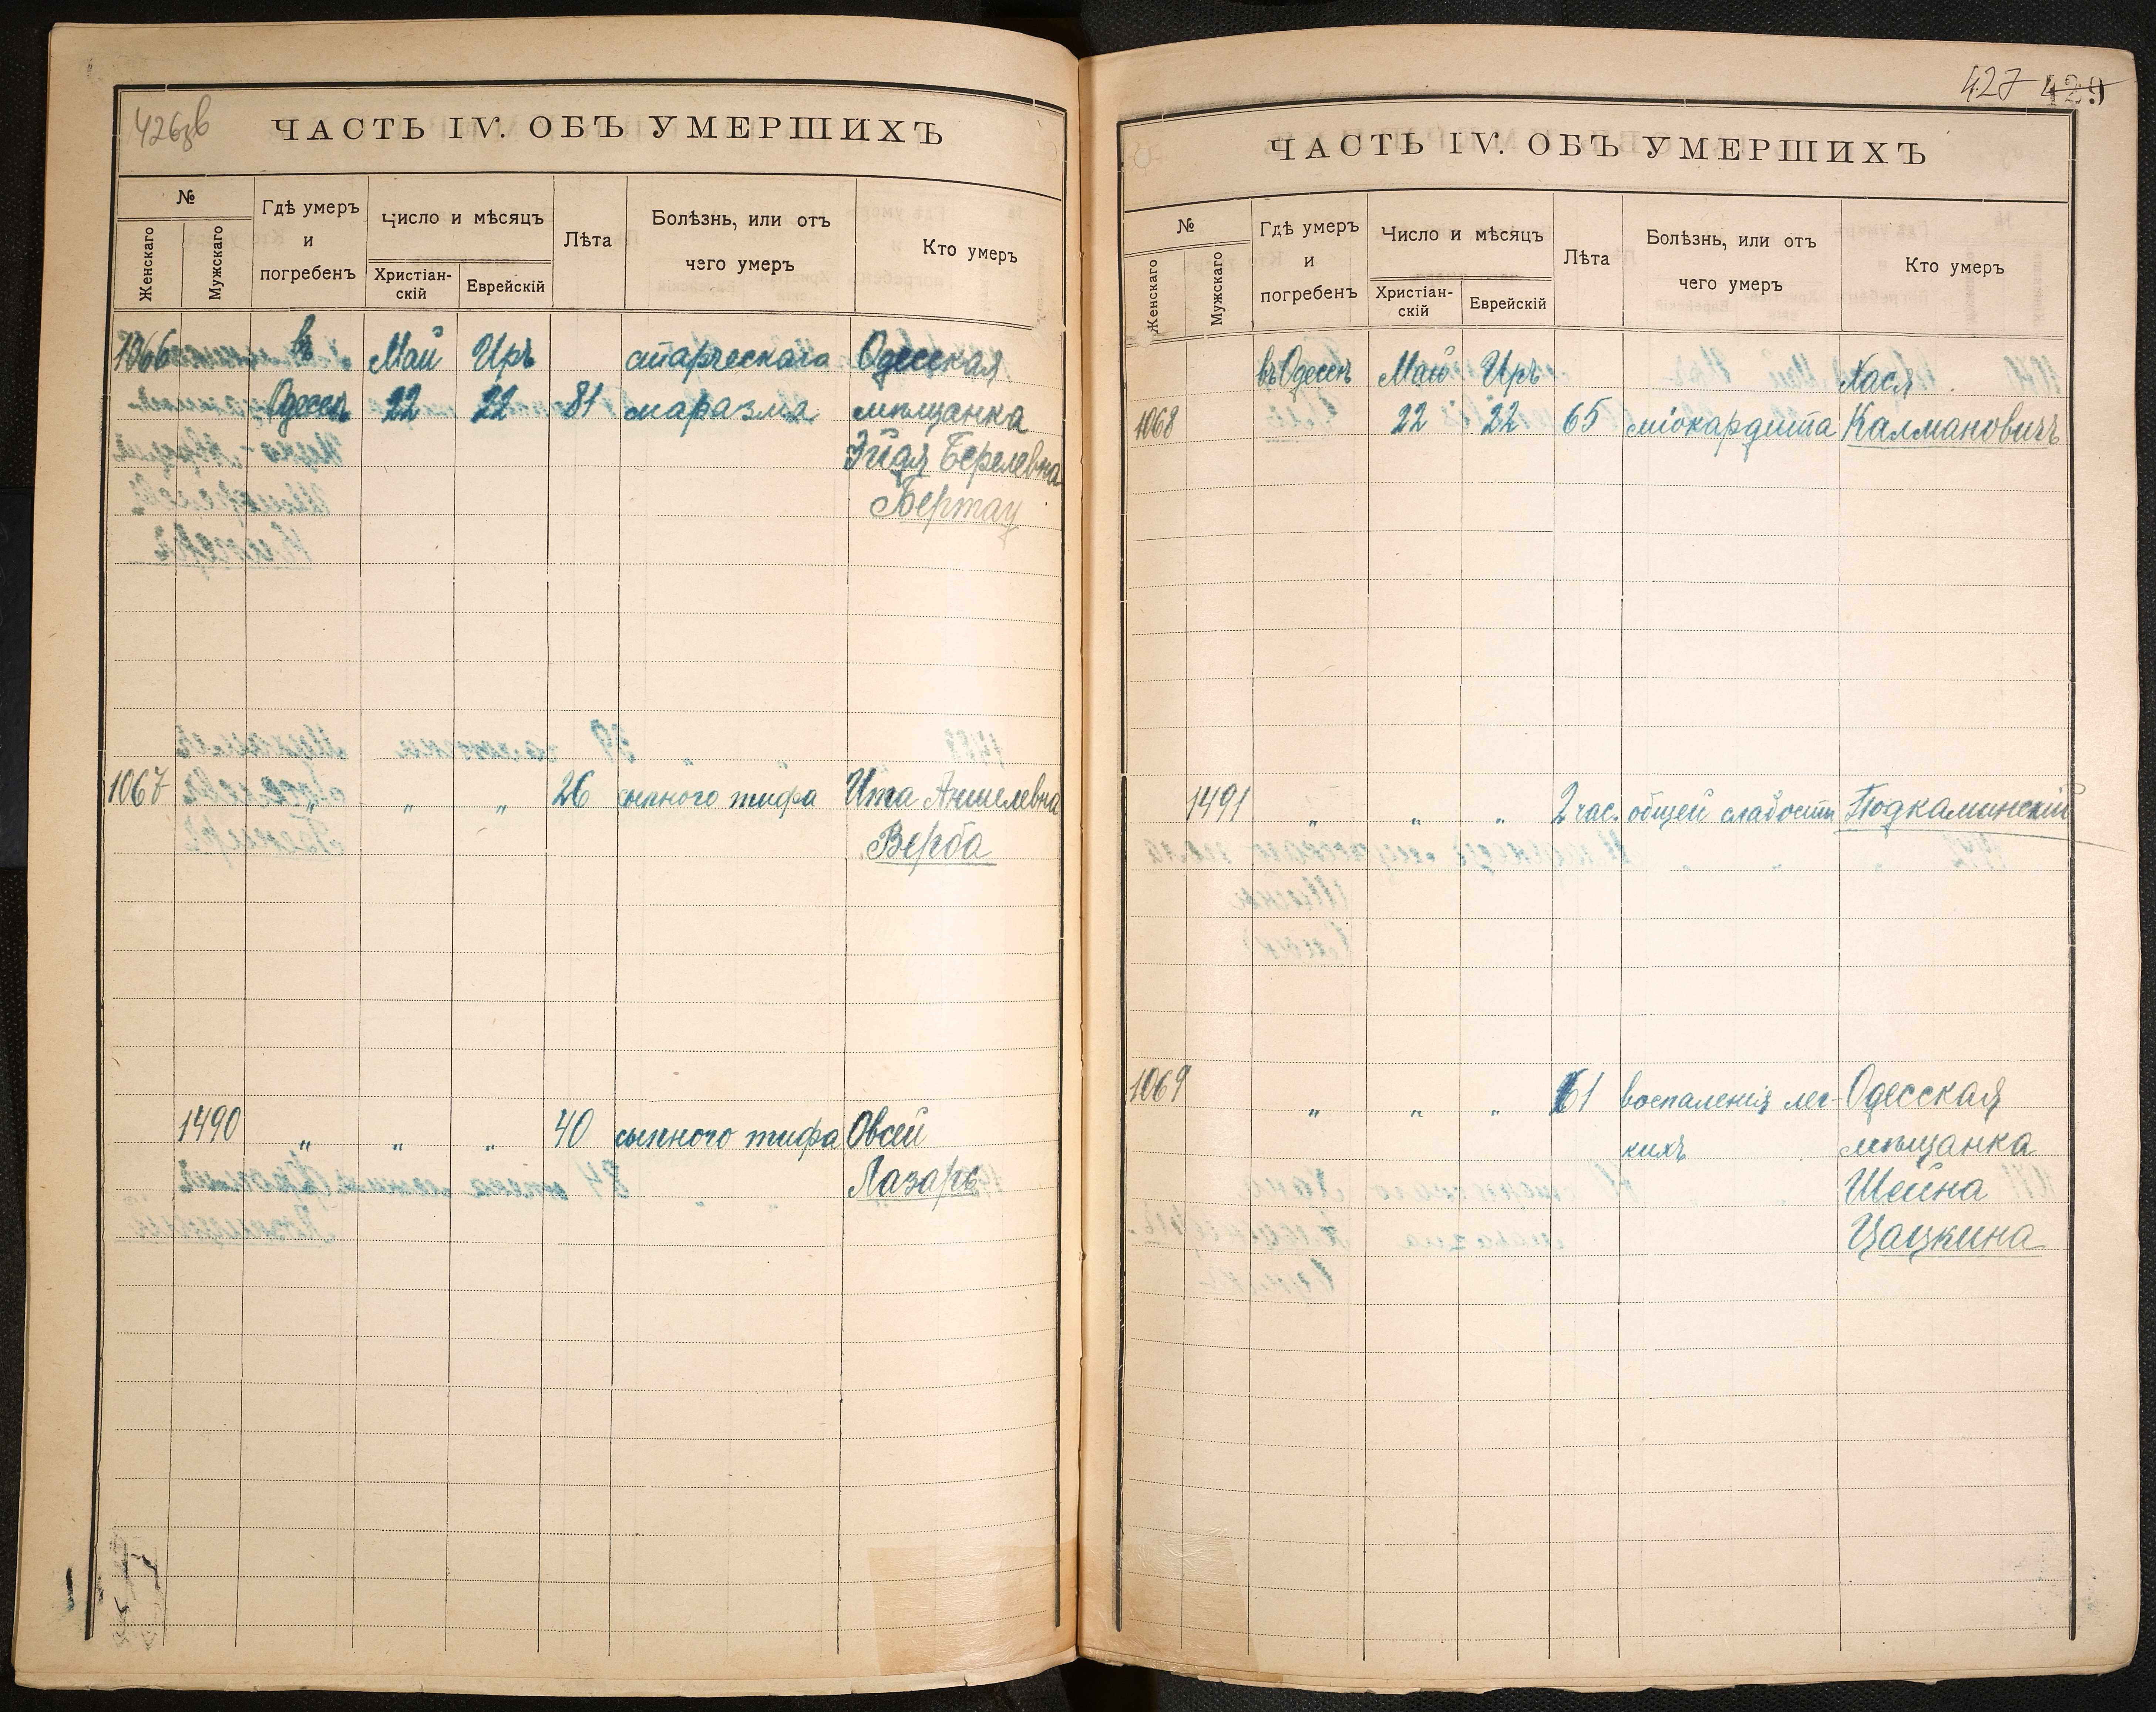 426зв
ЧАСТЬ IV. ОБЪ УМЕРШИХЪ
№
Женскаго
Мужскаго
Гдѣ умеръ
и
погребенъ
Число и мѣсяцъ
Христіан-
скій
Еврейскій
Лѣта
Болѣзнь, или отъ
чего умеръ
Кто умеръ
1066 въ Май Иръ старческаго Одесская
Одессѣ 22 22 81 маразма мѣщанка
Эйдя Берелевна
1067 " " " 26 сыпного тифа Ита Аншелевна
Верба
1490 " " " 40 сыпного тифа Овсей
Лазарь
427 429
ЧАСТЬ IV. ОБЪ УМЕРШИХЪ
№
Женскаго
Мужскаго
Гдѣ умеръ
и
погребенъ
Число и мѣсяцъ
Христіан-
скій
Еврейскій
Лѣта
Болѣзнь, или отъ
чего умеръ
Кто умеръ
въ Одессѣ Май Иръ Хася
1068 22 22 65 міокардита Калмановичъ
1491 " " " 2 час. общей слабости Подкаминскій
1069 " " " 61 воспаленія лег- Одесская
кихъ мѣщанка
Шейна
Цацкина